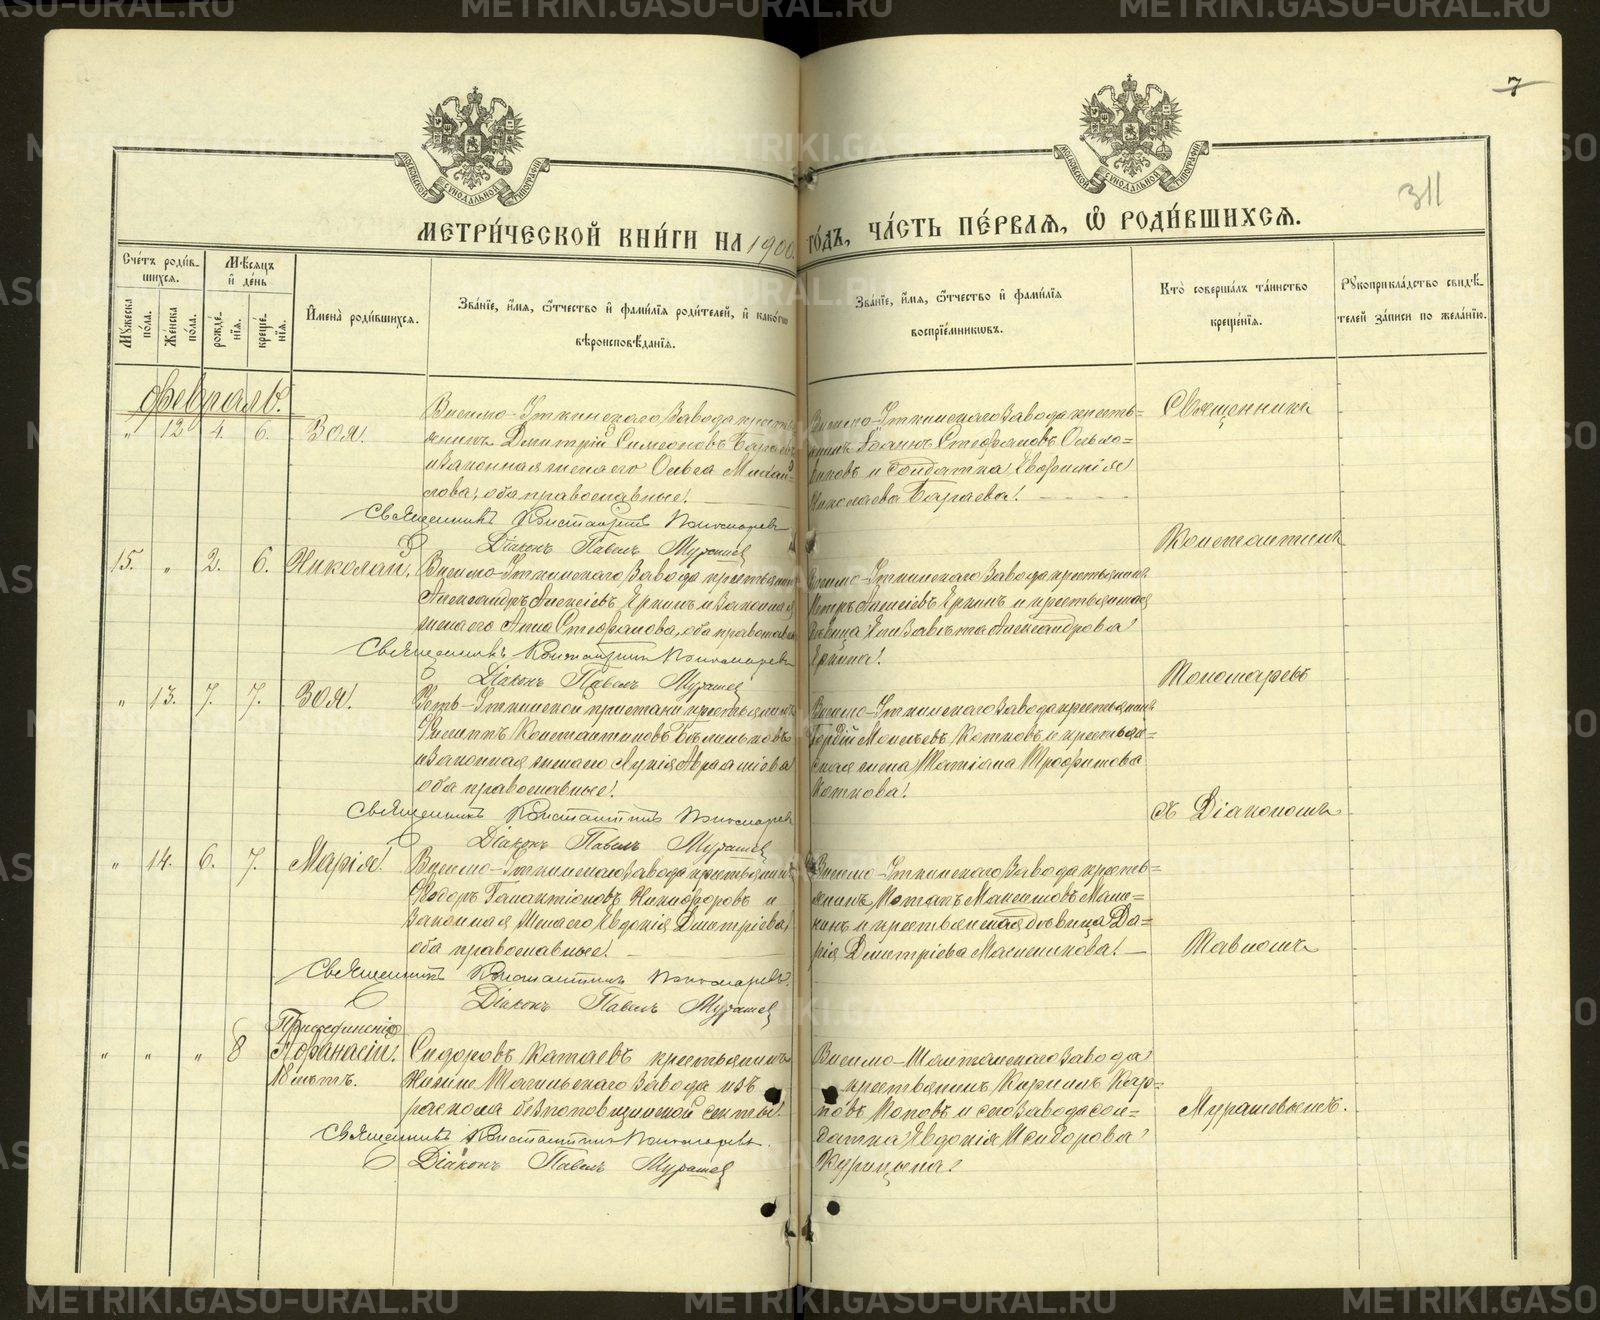 METRIKI.GASO-URAL.RU
7
311
МОСКОВСКОЙ СѴНОДАЛЬНОЙ ТИПОГРАФІИ
МОСКОВСКОЙ СѴНОДАЛЬНОЙ ТИПОГРАФІИ
МЕТРИ́ЧЕСКОЙ КНИ́ГИ НА 1900. ГО́ДЪ, ЧА́СТЬ ПЕ́РВАЯ, Ѡ҆ РОДИ́ВШИХСЯ.
Сче́тъ роди́вшихся.
Мѣ́сяцъ и҆ де́нь
Мꙋ́жеска по́ла.
Же́нска по́ла.
рожде́нїя.
креще́нїя.
И҆мена̀ роди́вшихся.
Зва́нїе, и҆́мя, ѻ҆́тчество и҆ фамі́лїя роди́телей, и҆ како́гѡ
вѣроисповѣ́данїя.
Зва́нїе, и҆́мя, ѻ҆́тчество и҆ фамі́лїя
воспрїе́мникѡвъ.
Кто̀ соверша́лъ та́инство
креще́нїя.
Рꙋкоприкла́дство свидѣ́телей за́писи по жела́нїю.
Февраль.
" 12 4. 6. Зоя.
Висимо-Уткинскаго Завода кресть-
янинъ Дмитрій Симеоновъ
и законная жена его Ольга Михаи-
лова, оба православные.
Священникъ Константинъ Пономаревъ
Діаконъ Павелъ Мурашев
Висимо-Уткинскаго Завода кресть-
янинъ Іоаннъ Стефановъ
и солдатка Евфимія
Николаева Бараева.
Священникъ
15. " 2. 6. Николай.
Висимо-Уткинскаго Завода крестьянинъ
Александръ Алексіевъ Еркинъ и законная
жена его Анна Стефанова, оба православн
Священникъ Константинъ Пономаревъ
Діаконъ Павелъ Мурашев
Висимо-Уткинскаго Завода крестьянинъ
Петръ Алексіевъ Еркинъ и крестьянская
дѣвица Елизавета Александрова
Еркина.
Константинъ
" 13. 7. 7. Зоя.
Усть-Уткинской пристани крестьянинъ
Филиппъ Константиновъ
и законная жена его Лукія Авраамиева
оба православные.
Священникъ Константинъ Пономаревъ
Діаконъ Павелъ Мурашев
Висимо-Уткинскаго Завода крестьянинъ
Гордій Моисеевъ Котковъ и крестьян-
ская жена Татіана Трофимова
Коткова.
Пономаревъ
" 14. 6. 7. Марія.
Висимо-Уткинскаго Завода крестьянинъ
Ѳеодоръ Галактіоновъ Никифоровъ и
законная жена его Евдокія Димитріева
оба православные.
Священникъ Константинъ Пономаревъ
Діаконъ Павелъ Мурашев
Висимо-Уткинскаго Завода кресть-
янинъ Потапъ Максимовъ
и крестьянская дѣвица Да-
рія Димитріева Масленикова.
съ Діакономъ
Павломъ
" " " 8
Присоединенію
Аѳанасій.
18 лѣтъ.
Сидоровъ Катаевъ крестьянинъ
Нижне Тагильскаго Завода изъ
раскола безпоповщинской секты.
Священникъ Константинъ Пономаревъ.
Діаконъ Павелъ Мурашев
Висимо-Шайтанскаго Завода
крестьянинъ Кирилъ Кар-
повъ Поповъ и сего Завода сол-
датка Евдокія Исидорова
Курицына.
Мурашевымъ.